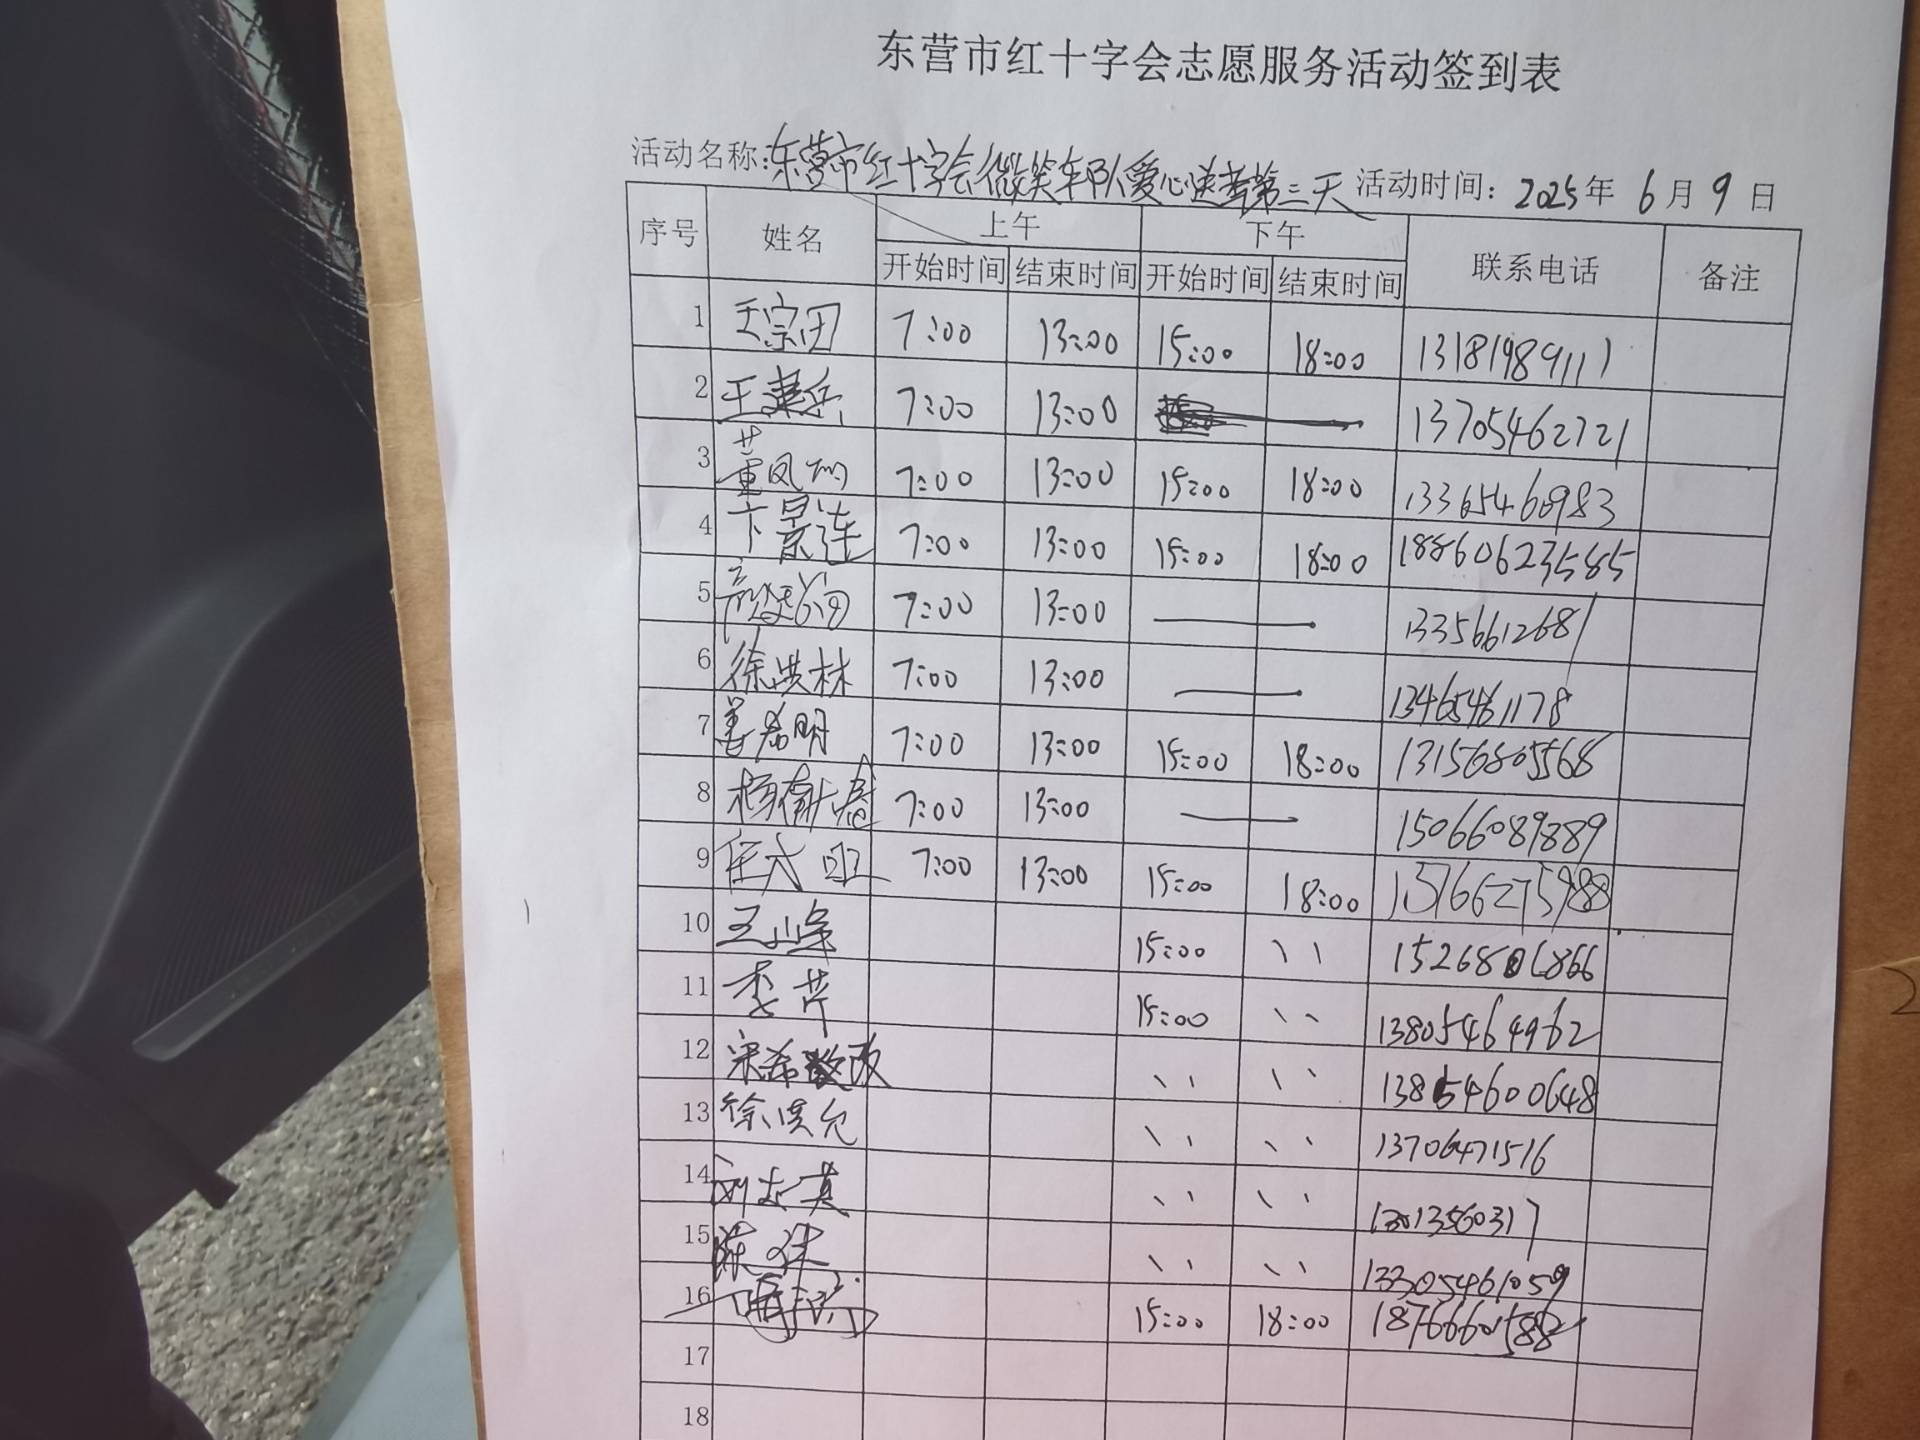 东营市红十字会志愿服务活动签到表
活动名称:东营市红十字会微笑车队爱心送考第三天 活动时间: 2025年 6月 9日
序号 姓名 上午 下午 联系电话 备注
开始时间 结束时间 开始时间 结束时间
1 王宗田 7:00 13:00 15:00 18:00 13181989111
2 王建兵 7:00 13:00 13705462721
3 董凤 7:00 13:00 15:00 18:00 13365460983
4 卞景连 7:00 13:00 15:00 18:00 18860623585
5 7:00 13:00 — 13356612681
6 徐洪林 7:00 13:00 — 13465461178
7 姜希明 7:00 13:00 15:00 18:00 13156805568
8 杨 7:00 13:00 — 15066089889
9 任式 7:00 13:00 15:00 18:00
10 王山峰 15:00 、、
11 李芹 15:00 、、 13805464962
12 宋希政 、、 、、 13854600648
13 徐洪允 、、 、、 13706471516
14 刘志英 、、 、、
15 陈 、、 、、
16 15:00 18:00
17
18
2